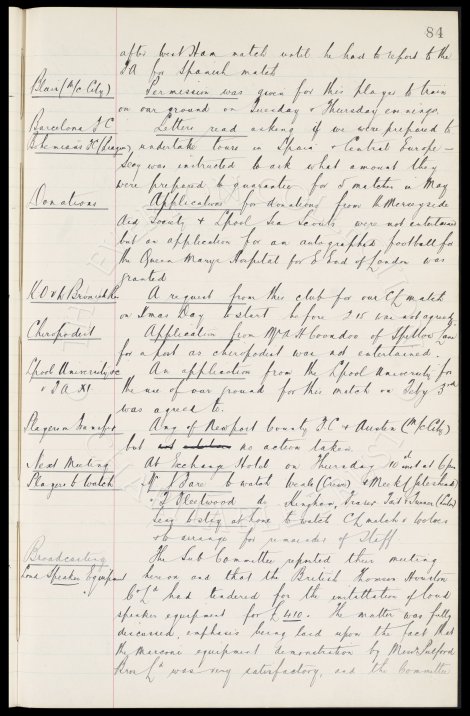 84
after West Ham match until he had to report to the
FA for Spanish match
Blair (M/c City) Permission was given for this player to train
on our ground on Tuesday & Thursday evenings.
Barcelona F C Letters read asking if we were prepared to
Bohemians FC (Prague) undertake tours in Spain & Central Europe –
Secy was instructed to ask what amount they
were prepared to guarantee for 5 matches in May
Donations Applications for donations from the Merseyside
Aid Society & Lpool Sea Scouts were not entertained
but an application for an autographed football for
the Queen Marys Hospital for E End of London was
granted
A request from this club for our CL match
on Xmas Day to start before 2.15 was not agreed.
Chiropodist Application from Mr A H of Lane
for a post as chiropodist was not entertained.
Lpool University An application from the Lpool University for
v F A XI the use of our ground for this match on Feby 3rd
was agreed to.
Players on Transfer Ang of Newport County F C & Austin (M/c City)
but no action taken.
Next Meeting At Exchange Hotel on Thursday 10 inst at 6pm
Players to Watch Mr J Sare to watch Neale (Crewe) & Meek (Gateshead)
" J Fleetwood do Kingham, Fraser & Turner (Luton)
Secy to stay at home to watch CL match v Wolves
& to arrange for remainder of Staff
Broadcasting The Sub Committee reported their meeting
Loud Speaker Equipment hereon and that the British Thomson Houston
Co Ld had tendered for the installation of loud
speaker equipment for £410. The matter was fully
discussed, emphasis being laid upon the fact that
the marconi equipment demonstration by Messrs
Bros Ld was very satisfactory, and the Committee